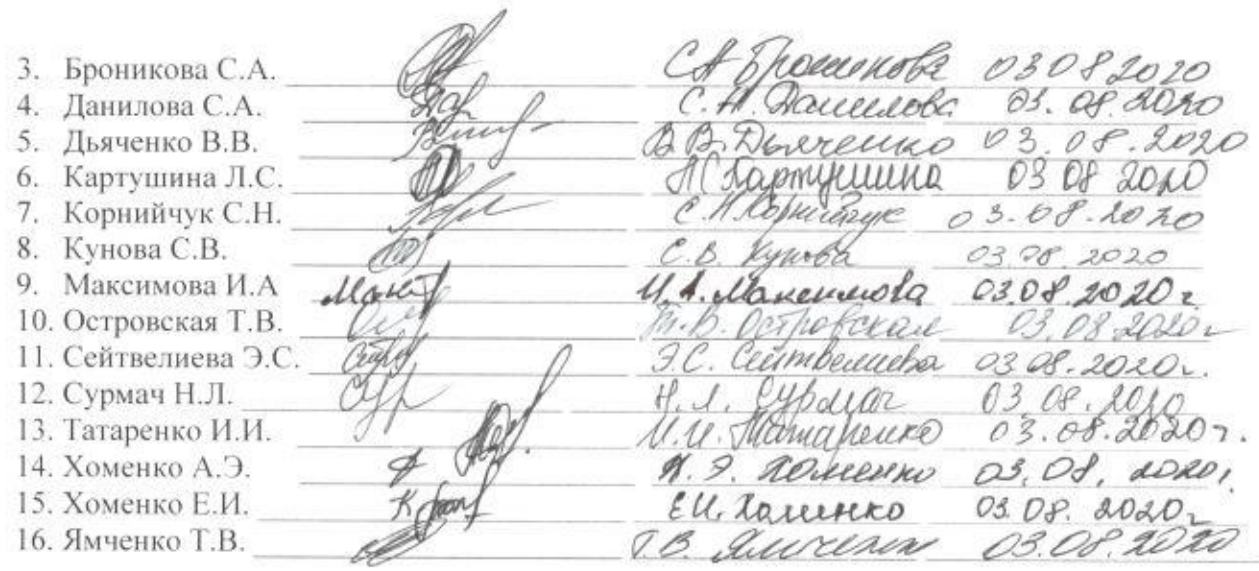 3. Броникова С.А. С.А. Броникова 03 08 2020
4. Данилова С.А. С.А. Данилова 03.08.2020
5. Дьяченко В.В. В.В. Дьяченко 03.08.2020
6. Картушина Л.С. Л.С. Картушина 03 08 2020
7. Корнийчук С.Н. С.Н. Корнийчук 03.08.2020
8. Кунова С.В. С.В. Кунова 03.08.2020
9. Максимова И.А И.А. Максимова 03.08.2020 г.
10. Островская Т.В. Т.В. Островская 03.08.2020г
11. Сейтвелиева Э.С. Э.С. Сейтвелиева 03.08.2020г.
12. Сурмач Н.Л. Н.Л. Сурмач 03.08.2020
13. Татаренко И.И. И.И. Татаренко 03.08.2020г.
14. Хоменко А.Э. А.Э. Хоменко 03.08.2020г.
15. Хоменко Е.И. Е.И. Хоменко 03.08.2020г
16. Ямченко Т.В. Т.В. Ямченко 03.08.2020